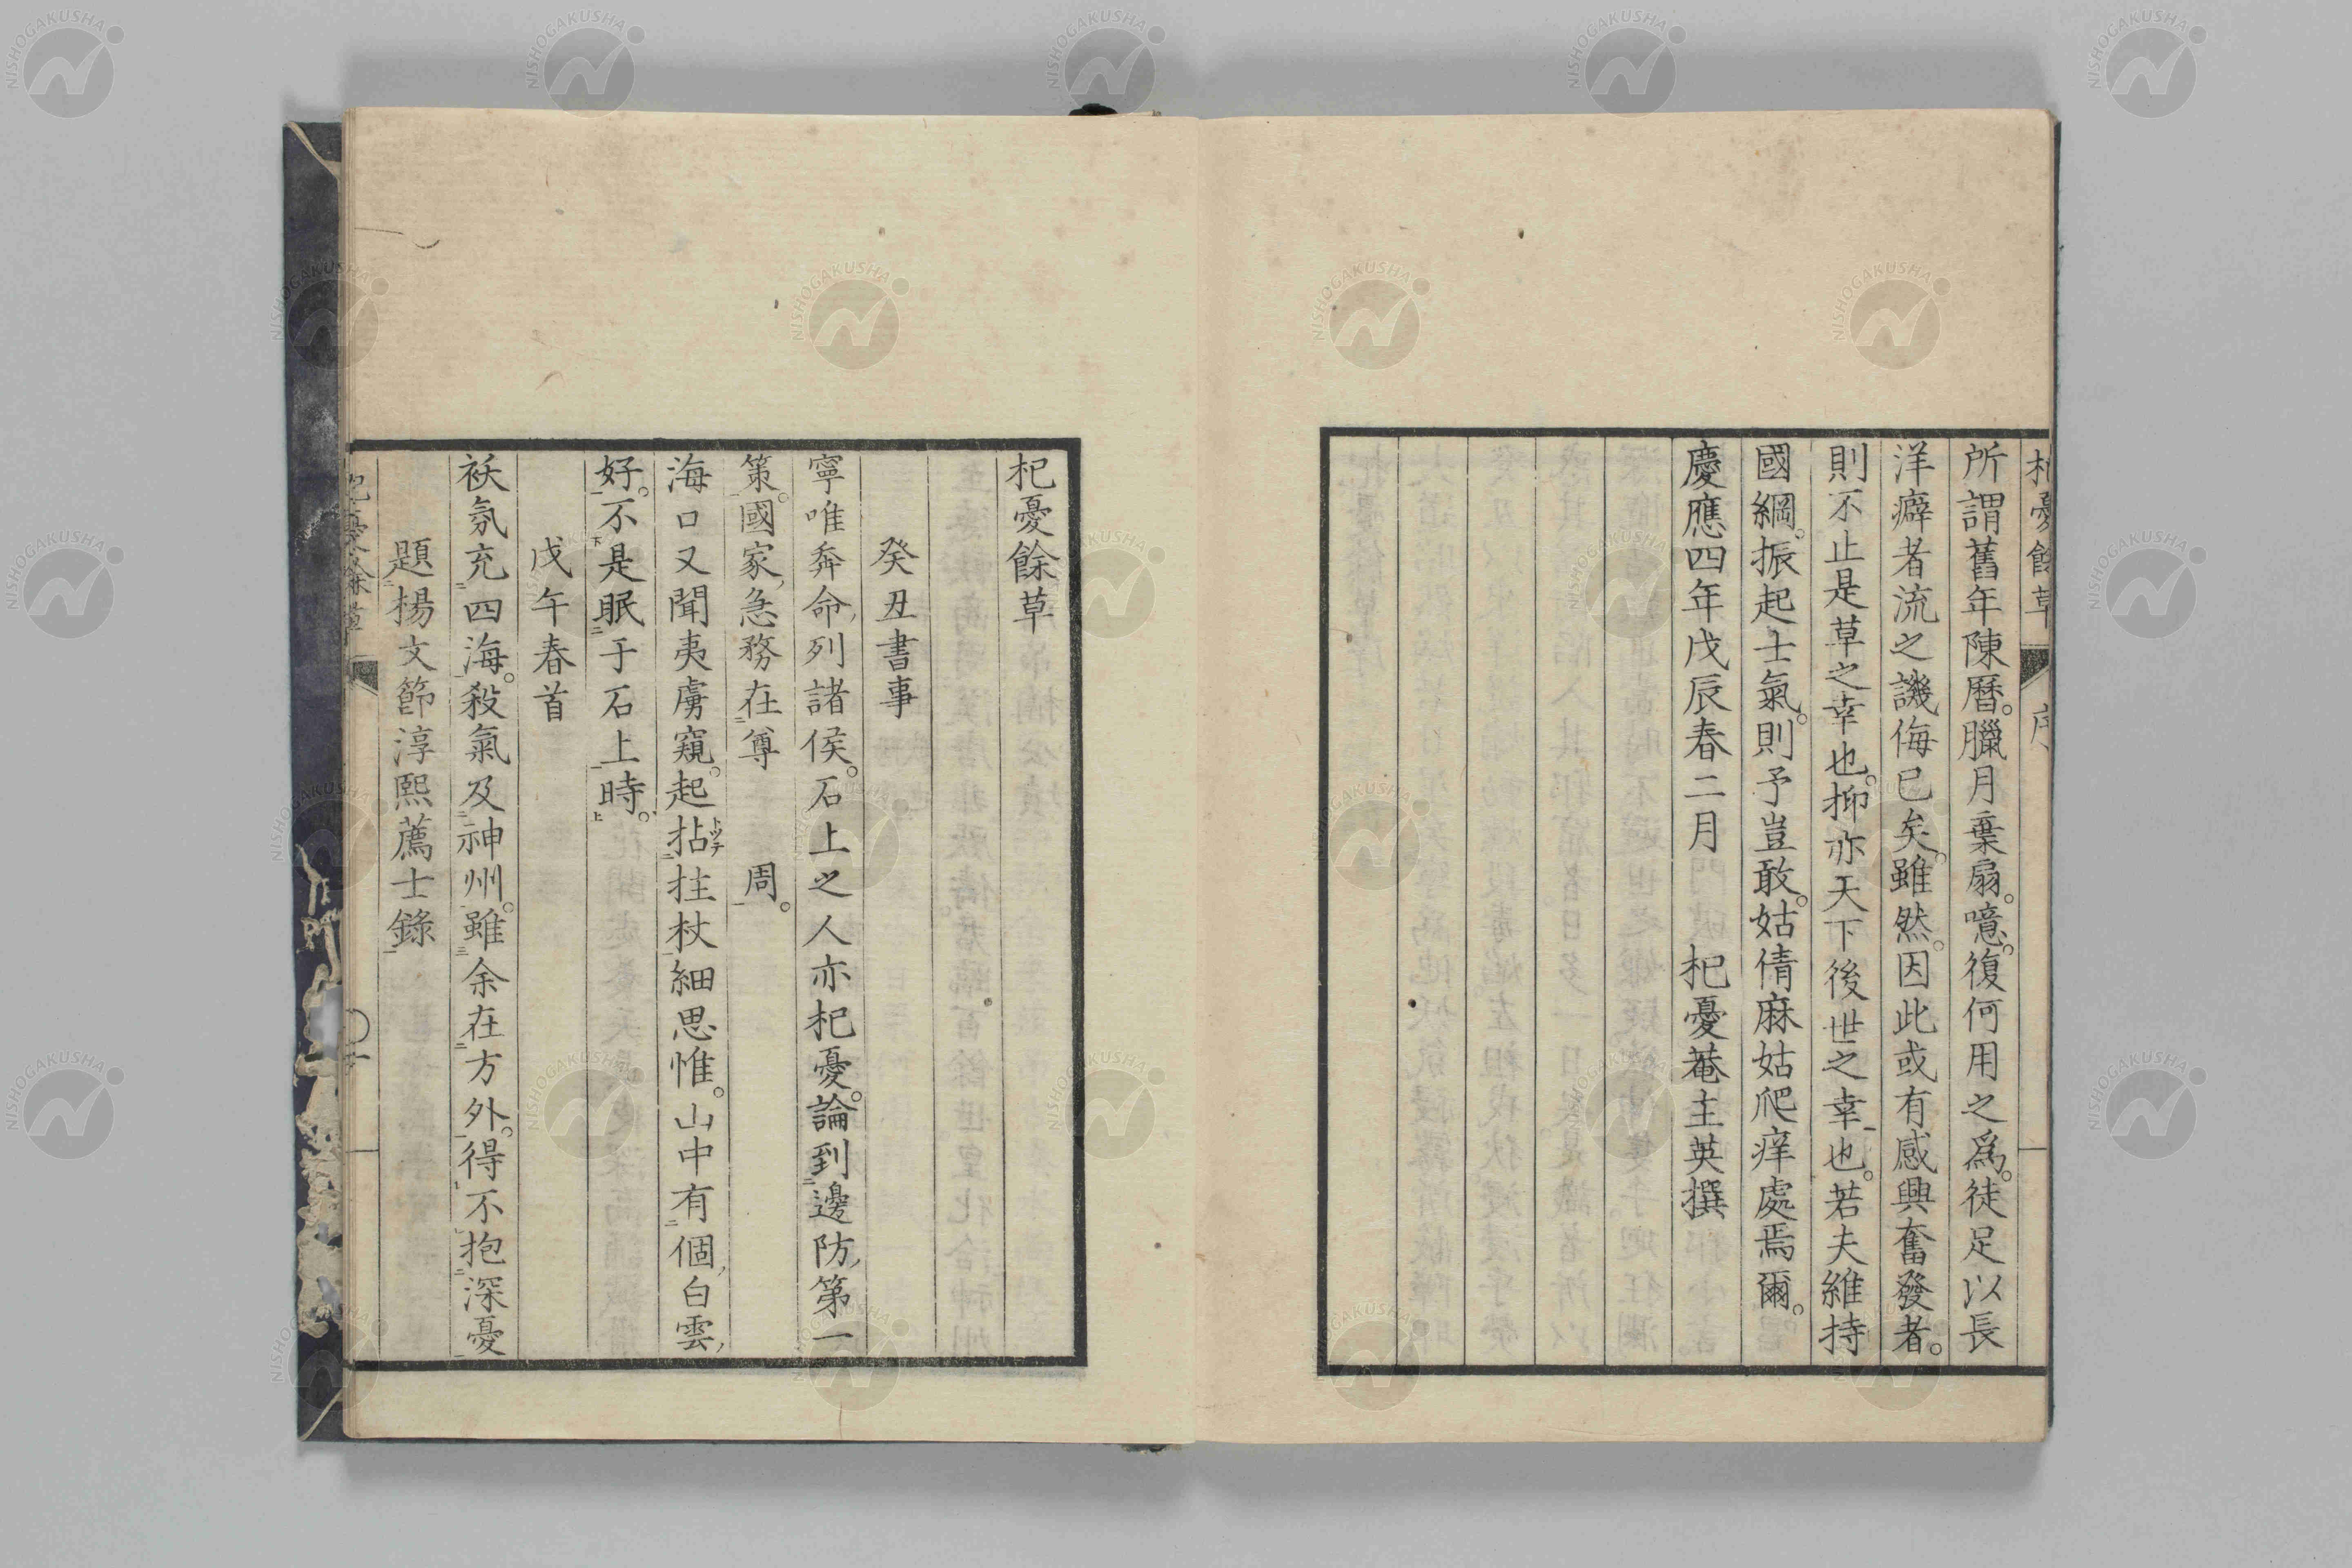 所謂舊年陳曆。臘月棄扇。噫。復何用之爲。徒足以長
洋癖者流之譏侮已矣。雖然。因此或有感興奮發者。
則不止是草之幸也。抑亦天下後世之幸也。若夫維持
國綱。振起士氣。則予豈敢。姑倩麻姑爬痒處焉爾。
慶應四年戊辰春二月　杞憂菴主英撰
杞憂餘草
癸丑書事
寧唯奔命列諸侯。石上之人亦杞憂。論到邊防第一
策。國家急務在尊周。
海口又聞夷虜窺。起拈拄杖細思惟。山中有個白雲
好。不是眠于石上時。
戊午春首
祅氛充四海。殺氣及神州。雖余在方外。得不抱深憂
題楊文節淳熙薦士錄
NISHOGAKUSHA